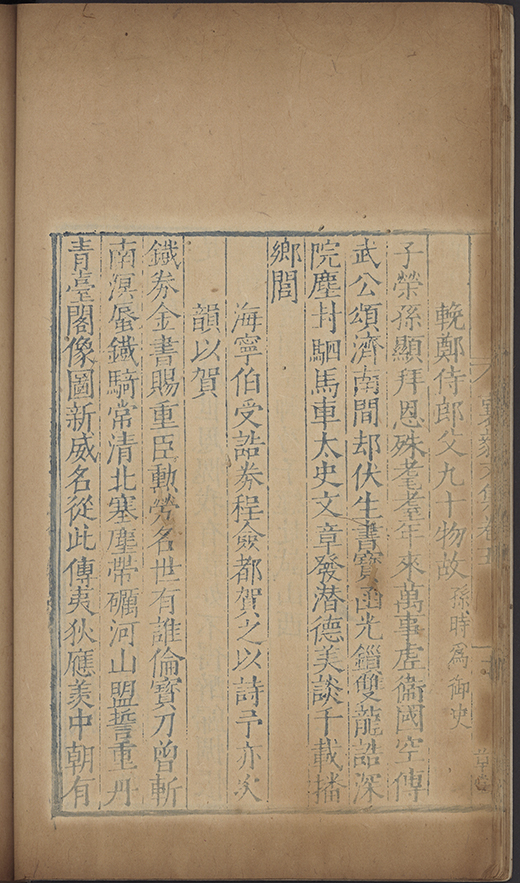 輓鄭侍郎父九十物故孫時為御史
子榮孫顯拜恩殊耄耋年來萬事虛衞國空傳
武公頌濟南間却伏生書寶函光鎖雙龍誥深
院塵封駟馬車太史文章發潜德美談千載播
鄉閭
海寧伯受誥券程僉都賀之以詩予亦次
韻以賀
鐵券金書賜重臣勳勞名世有誰倫寶刀曾斬
南溟蜃鐵騎常清北塞塵帶礪河山盟誓重丹
青臺閣像圖新威名從此傳夷狄應羨中朝有